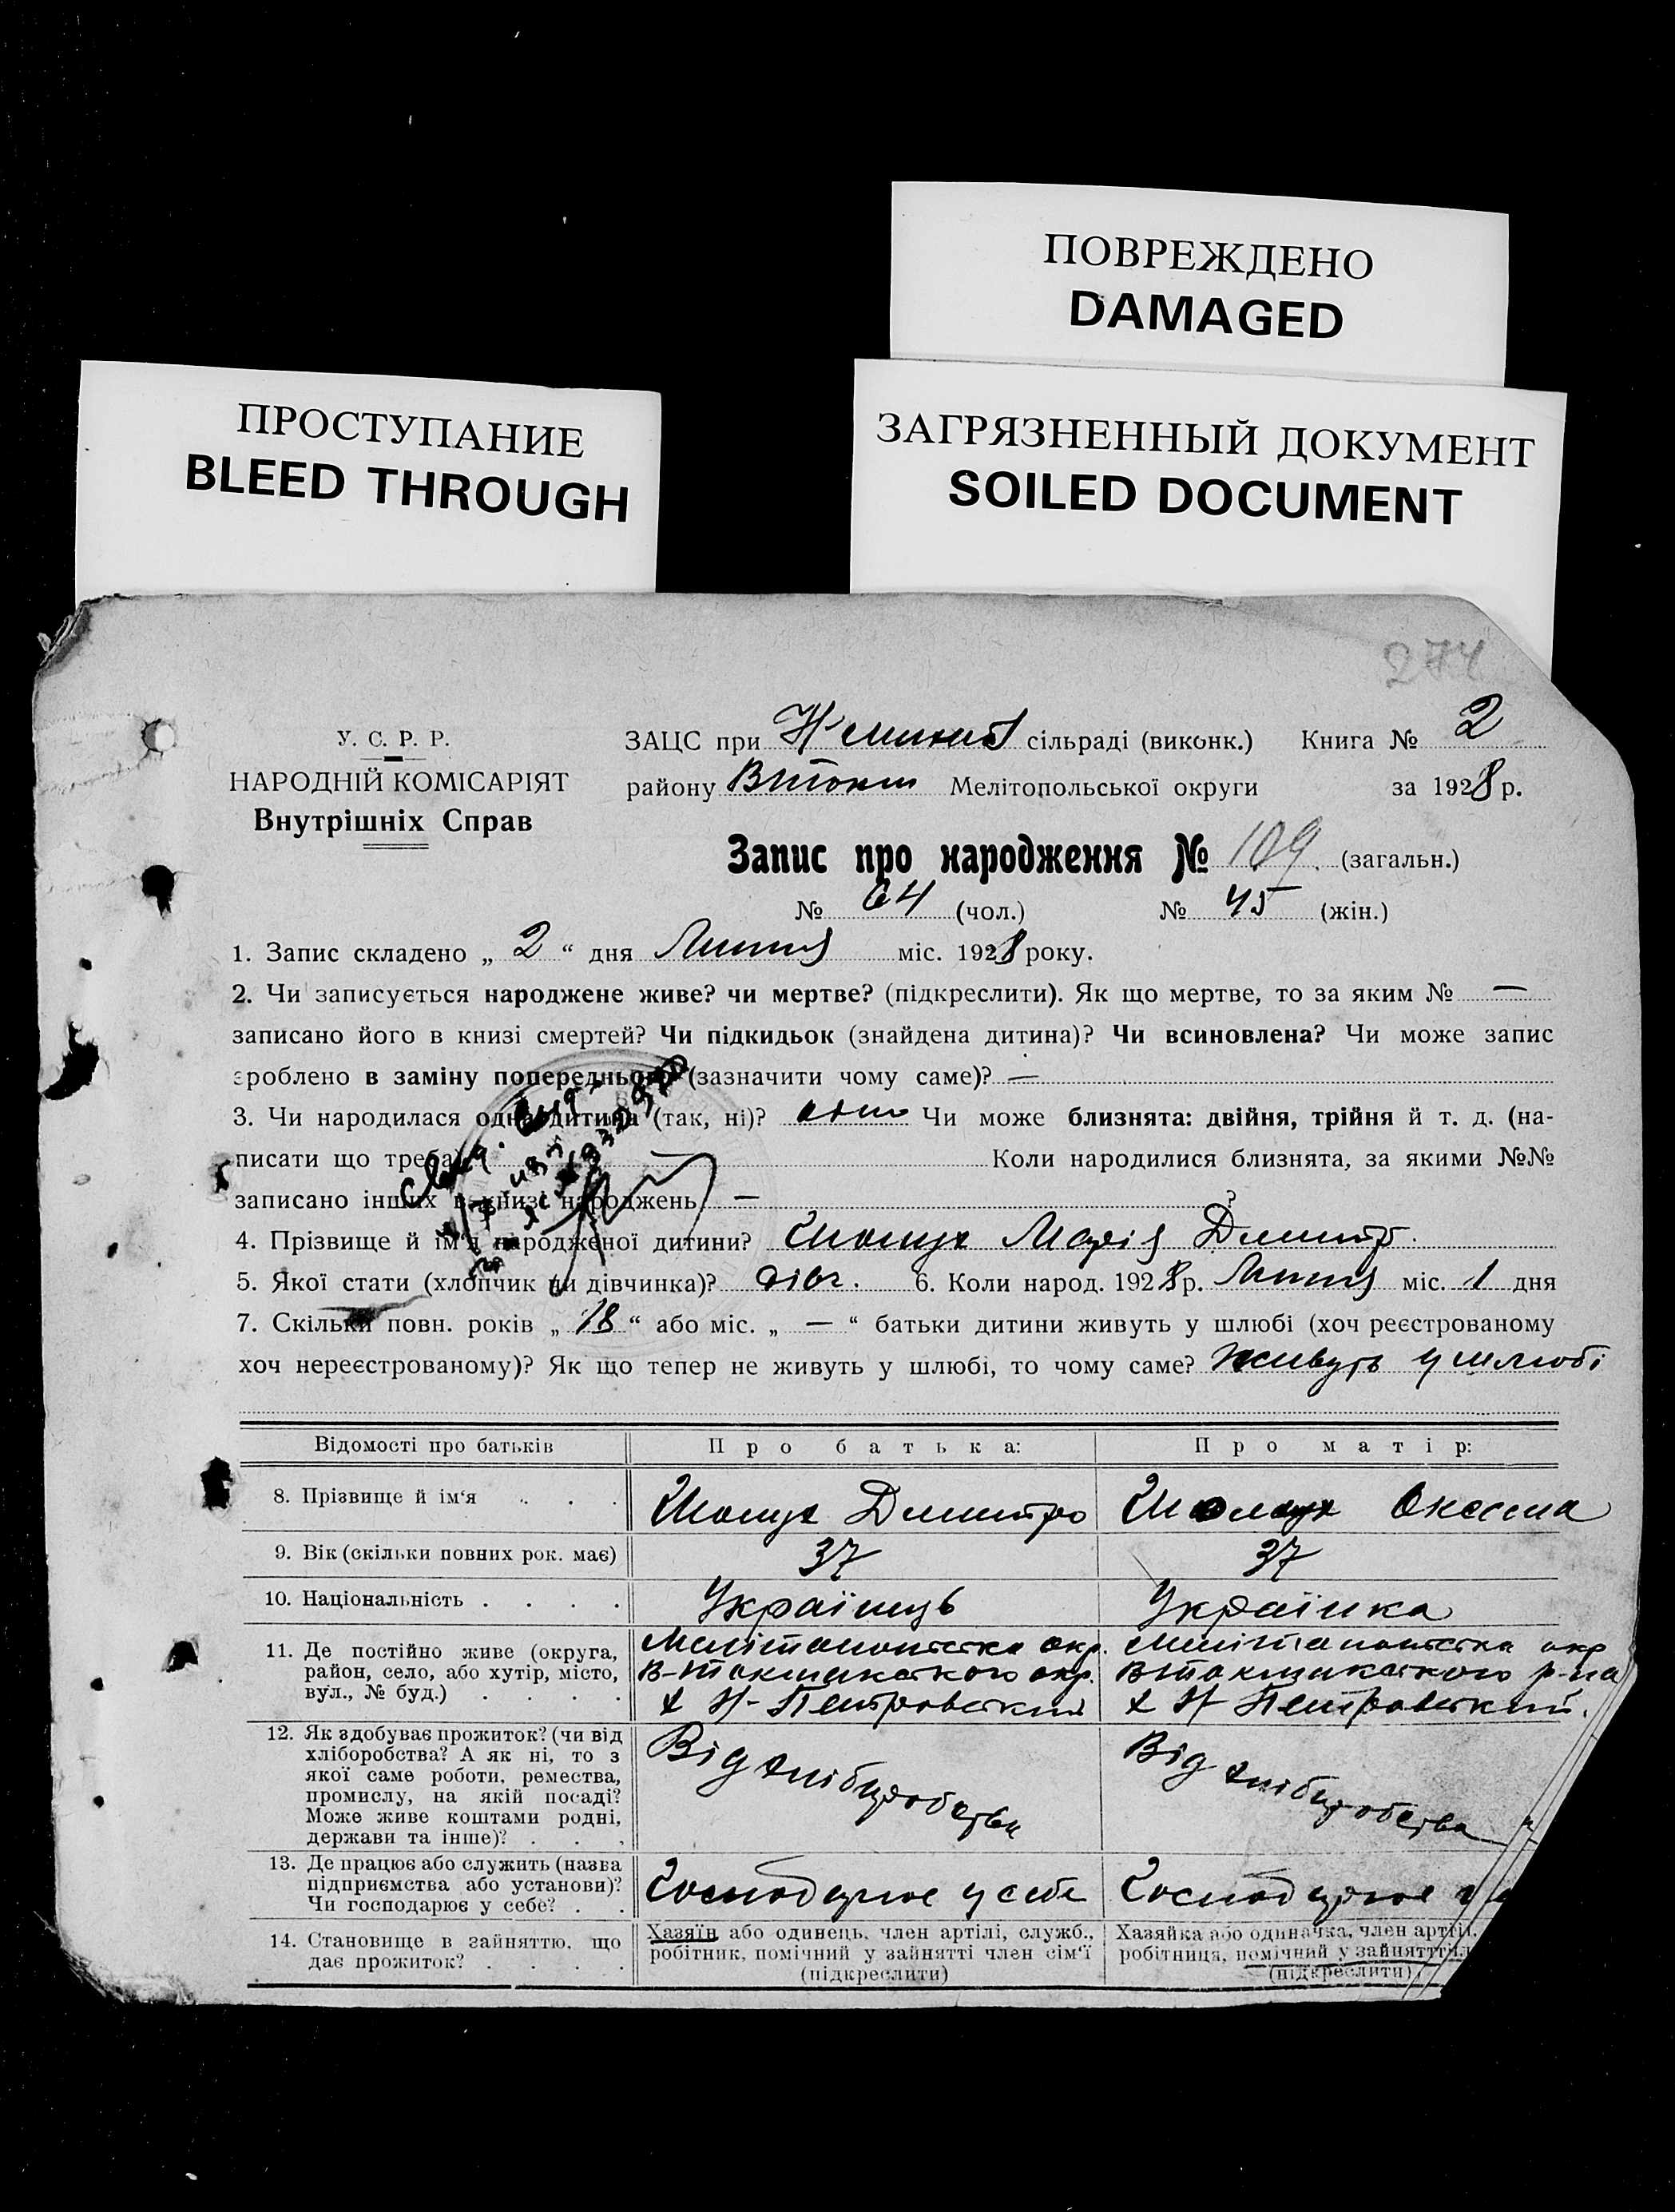 ПОВРЕЖДЕНО
DAMAGED
ПРОСТУПАНИЕ
BLEED THROUGH
ЗАГРЯЗНЕННЫЙ ДОКУМЕНТ
SOILED DOCUMENT
274
У. С. Р. Р.
НАРОДНІЙ КОМІСАРІЯТ
Внутрішніх Справ
ЗАЦС при сільраді (виконк.) Книга № 2
району Вток Мелітопольської округи за 1928 р.
Запис про народження № 109 (загальн.)
№ 64 (чол.) № 45 (жін.)
1. Запис складено „ 2 “ дня Липня міс. 1928 року.
2. Чи записується народжене живе? чи мертве? (підкреслити). Як що мертве, то за яким № —
записано його в книзі смертей? Чи підкидьок (знайдена дитина)? Чи всиновлена? Чи може запис
зроблено в заміну попереднього (зазначити чому саме)? —
3. Чи народилася одна дитина (так, ні)? Чи може близнята: двійня, трійня й т. д. (на-
писати що треба) Коли народилися близнята, за якими №№
записано інших в книзі народжень — ?
4. Прізвище й ім'я народженої дитини? Марія Дмитр.
5. Якої стати (хлопчик чи дівчинка)? дівч. 6. Коли народ. 1928 р. Липня міс. 1 дня
7. Скільки повн. років „ 18 “ або міс. „ — “ батьки дитини живуть у шлюбі (хоч реєстрованому
хоч нереєстрованому)? Як що тепер не живуть у шлюбі, то чому саме? Живуть у шлюбі
Відомості про батьків Про батька: Про матір:
8. Прізвище й ім‘я Дмитро Оксана
9. Вік (скільки повних рок. має) 37 37
10. Національність Українець Українка
11. Де постійно живе (округа, район, село, або хутір, місто, вул., № буд.)
Мелітопольська окр.
В-Токмакского окр.
х Н-Петровский
Мелітопольська окр
ВТокмакского р-на
х Н Петровский.
12. Як здобуває прожиток? (чи від хліборобства? А як ні, то з якої саме роботи, ремества, промислу, на якій посаді? Може живе коштами родні, держави та інше)?
Від хлібуробства
Від хлібуробства
13. Де працює або служить (назва підприємства або установи)? Чи господарює у себе?
Господарює у себе
Господарює
14. Становище в зайняттю, що дає прожиток?
Хазяїн або одинець, член артілі, служб., робітник, помічний у зайнятті член сім‘ї (підкреслити)
Хазяйка або одиначка, член артілі, робітниця, помічний у зайнятті (підкреслити)